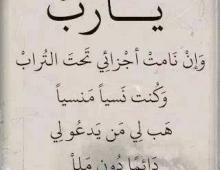 يـــاربْ
وَإنْ نَامتْ أجْزائِي تَحتَ التُرابْ
وَكُنت نَسياً مَنسياً
هَب لِي مَن يَدعُو لِي
دَائِمًا دُون مَللْ